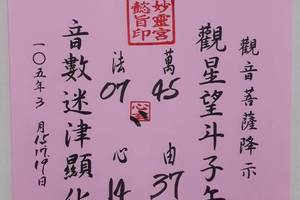 觀音菩薩降示
觀星望斗子午
萬 45 由 37
妙靈宮
懿旨印
心
法 07 心 14
音數迷津顯化
一〇五年3月15.17.19日